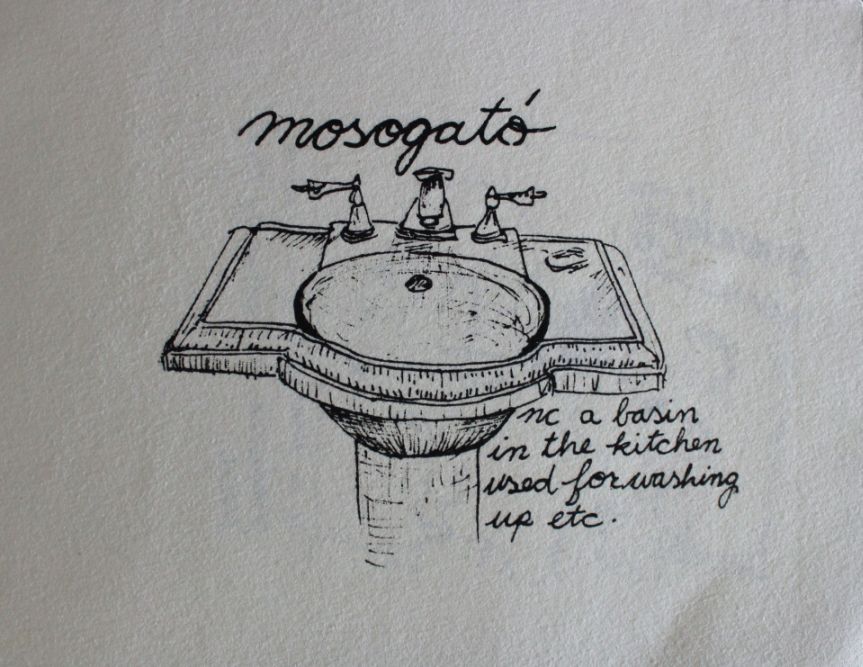 mosogató
nc a basin
in the kitchen
used for washing
up etc.